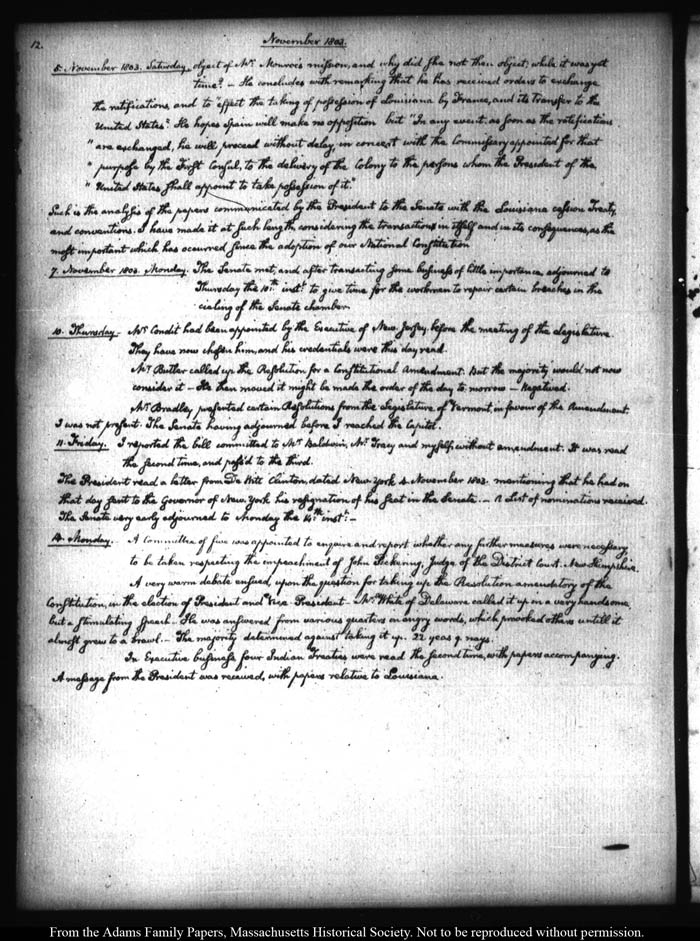 12.
November 1803.
5. November 1803. Saturday. object of Mr. Monroe's mission, and why did she not then object, while it was yet
time? — He concludes with remarking that he has received orders to exchange
the ratifications, and to "effect the taking of possession of Louisiana by France, and its transfer to the
United States." He hopes Spain will make no opposition but "In any event, as soon as the ratifications
" are exchanged, he will proceed without delay, in concert with the Commissary appointed for that
" purpose by the First Consul, to the delivery of the Colony to the persons whom the President of the
" United States shall appoint to take possession of it."
Such is the analysis of the papers communicated by the President to the Senate with the Louisiana cession Treaty,
and conventions. I have made it at such length, considering the transactions in itself and in its consequences, as the
most important which has occurred since the adoption of our National Constitution
7. November 1803. Monday. The Senate met, and after transacting some business of little importance, adjourned to
Thursday the 10th. inst. to give time for the workmen to repair certain breaches in the
cieling of the Senate chamber.
10. Thursday. Mr. Condit had been appointed by the Executive of New Jersey, before the meeting of the Legislature.
They have now chosen him, and his credentials were this day read.
Mr. Butler called up the Resolution for a Constitutional Amendment. But the majority would not now
consider it — He then moved it might be made the order of the day to morrow — Negatived.
Mr. Bradley, presented certain Resolutions from the Legislature of Vermont, in favour of the Amendment.
I was not present. The Senate having adjourned before I reached the Capitol.
11. Friday. I reported the bill committed to Mr. Baldwin, Mr. Tracy and myself, without amendment. It was read
the second time, and pass'd to the third.
The President read a letter from De Witt Clinton, dated New York 4. November 1803. mentioning that he had on
that day sent to the Governor of New York his resignation of his seat in the Senate. — A List of nominations received.
The Senate very early adjourned to Monday the 14th. inst: —
14. Monday. A Committee of five was appointed to enquire and report whether any further measures were necessary
to be taken respecting the impeachment of John Pickering, Judge of the District Court. New Hampshire.
A very warm debate ensued, upon the question for taking up the Resolution amendatory of the
Constitution, in the election of President and Vice President — Mr. White of Delaware called it up in a very handsome,
but a stimulating speech. He was answered from various quarters in angry words, which provoked others until it
almost grew to a brawl. — The majority determined against taking it up. 22 yeas 9. nays.
In Executive business four Indian Treaties were read the second time, with papers accompanying.
A message from the President was received, with papers relative to Louisiana.
From the Adams Family Papers, Massachusetts Historical Society. Not to be reproduced without permission.